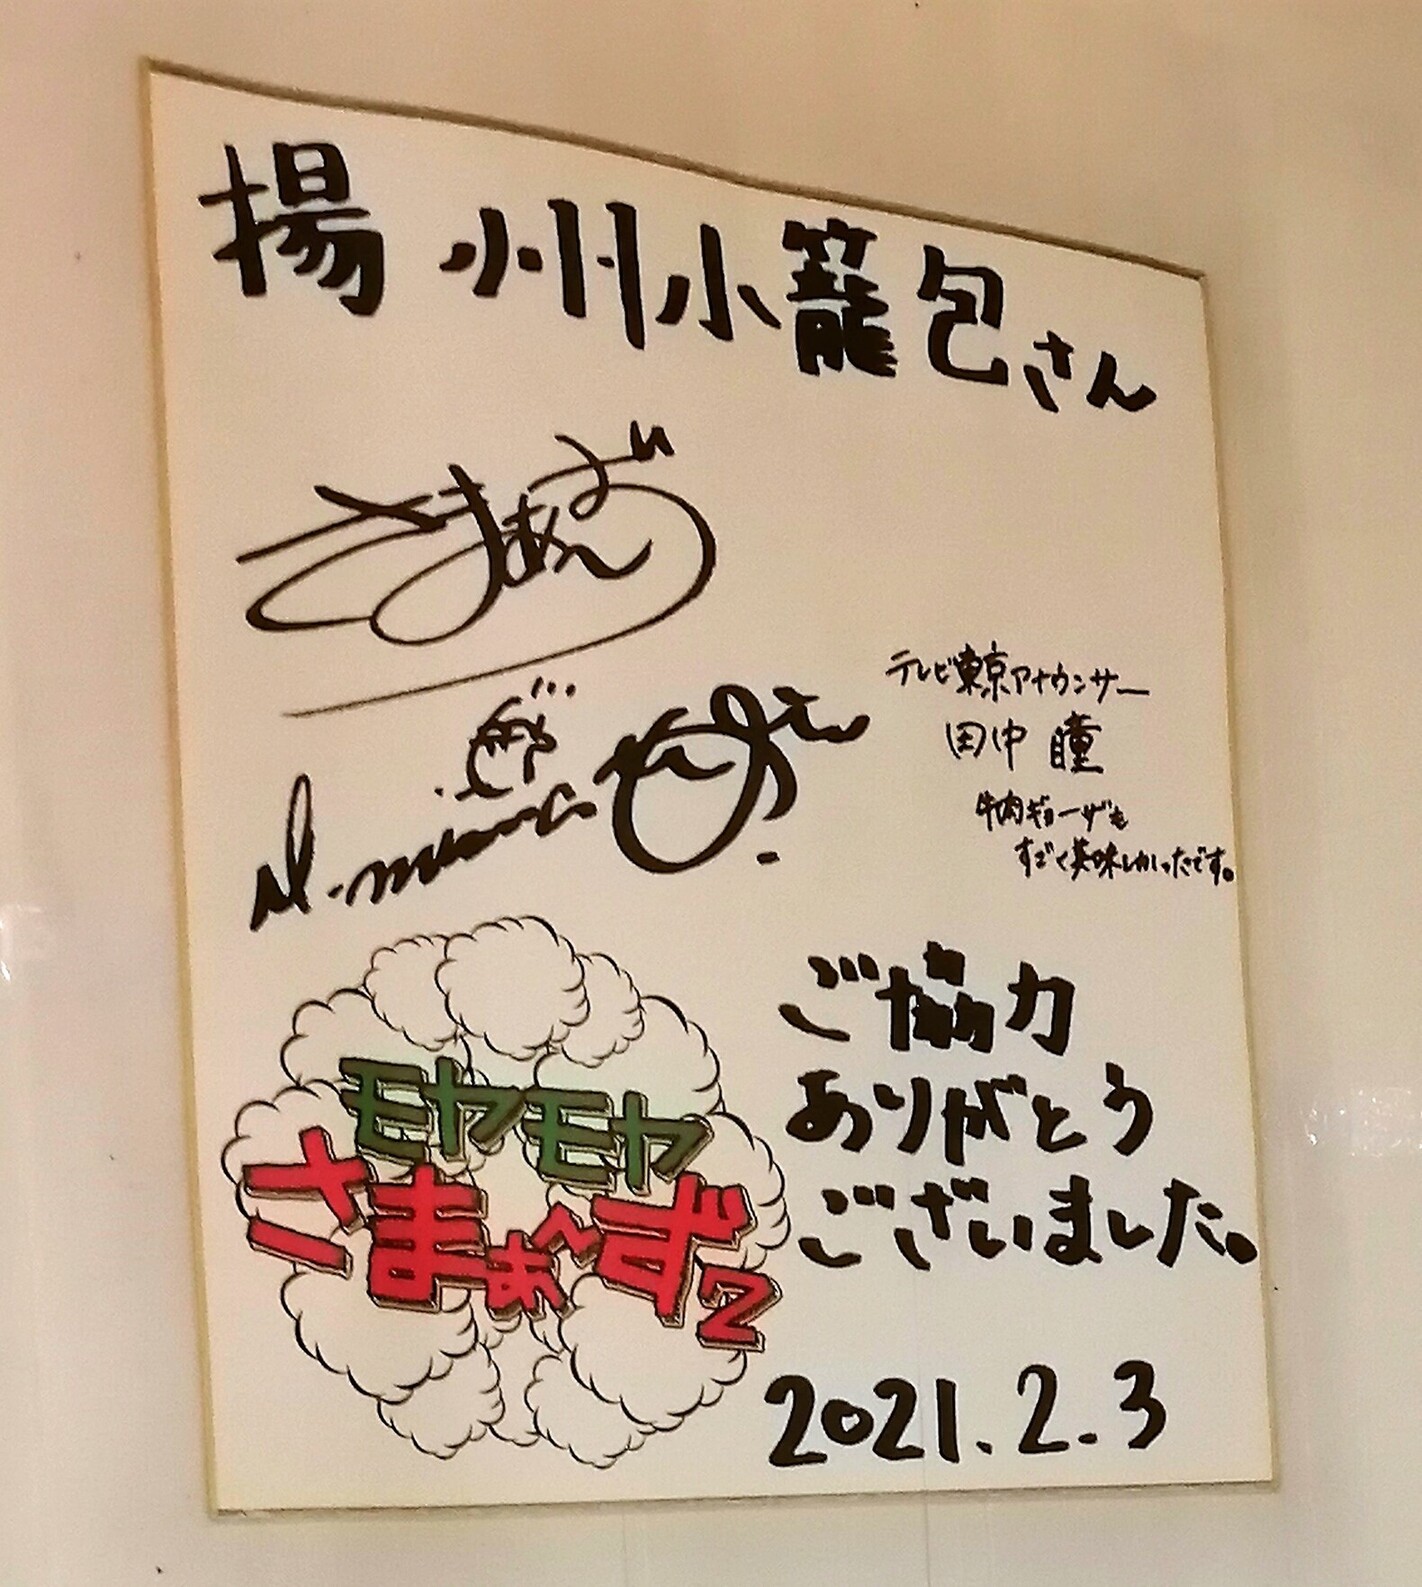 揚州小籠包さん
さまぁ~ず
テレビ東京アナウンサー
田中 瞳
牛肉ギョーザも
すごく美味しかったです。
モヤモヤ
さまぁ~ず2
ご協力
ありがとう
ございました。
2021.2.3